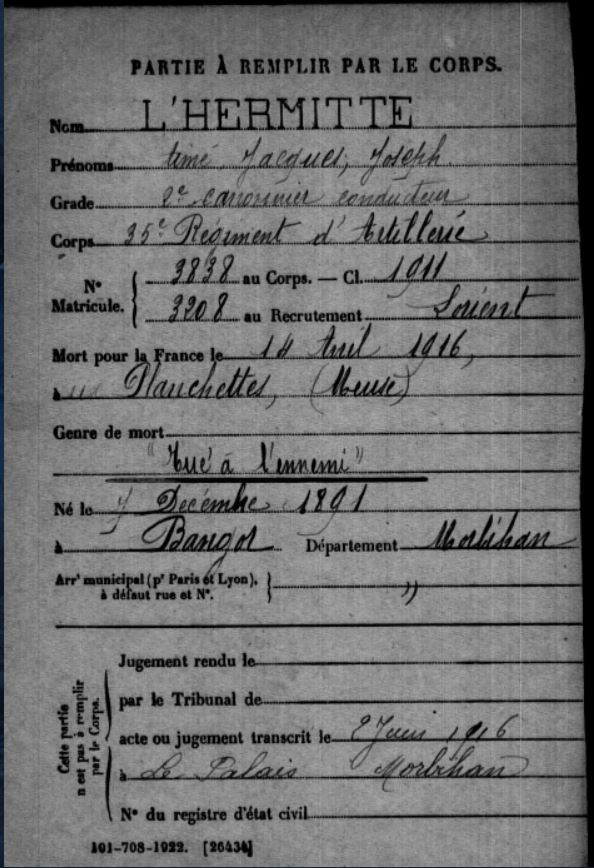 PARTIE À REMPLIR PAR LE CORPS.
Nom L'HERMITTE
Prénoms Aimé Jacques, Joseph
Grade 2e canonnier conducteur
Corps 35e Régiment d'Artillerie
N° Matricule. 3838 au Corps. — Cl. 1911
3208 au Recrutement Lorient
Mort pour la France le 14 Avril 1916,
à Planchettes, (Meuse)
Genre de mort
"Tué à l'ennemi"
Né le 7 Décembre 1891
à Bangor Département Morbihan
Arrt municipal (pr Paris et Lyon), à défaut rue et N°. "
Cette partie n'est pas à remplir par le Corps.
Jugement rendu le
par le Tribunal de
acte ou jugement transcrit le 2 Juin 1916
à Le Palais Morbihan
N° du registre d'état civil
101-708-1922. [26434]